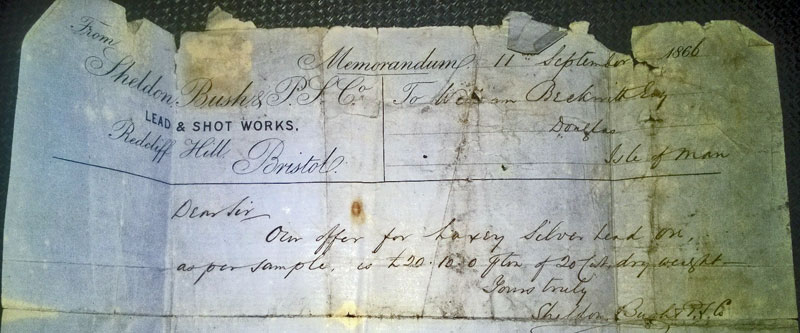 From
Memorandum 11th September 1866
Sheldon, Bush & P. S. Co
To Beckwith Esq
LEAD & SHOT WORKS,
Douglas
Redcliff Hill
Isle of Man
Bristol.
Dear Sir
Our offer for Laxey Silver Lead Ore,
as per sample, is £20.10.0 ton of 20 Cwt. dry weight
Yours truly
Sheldon Bush & P. S. Co